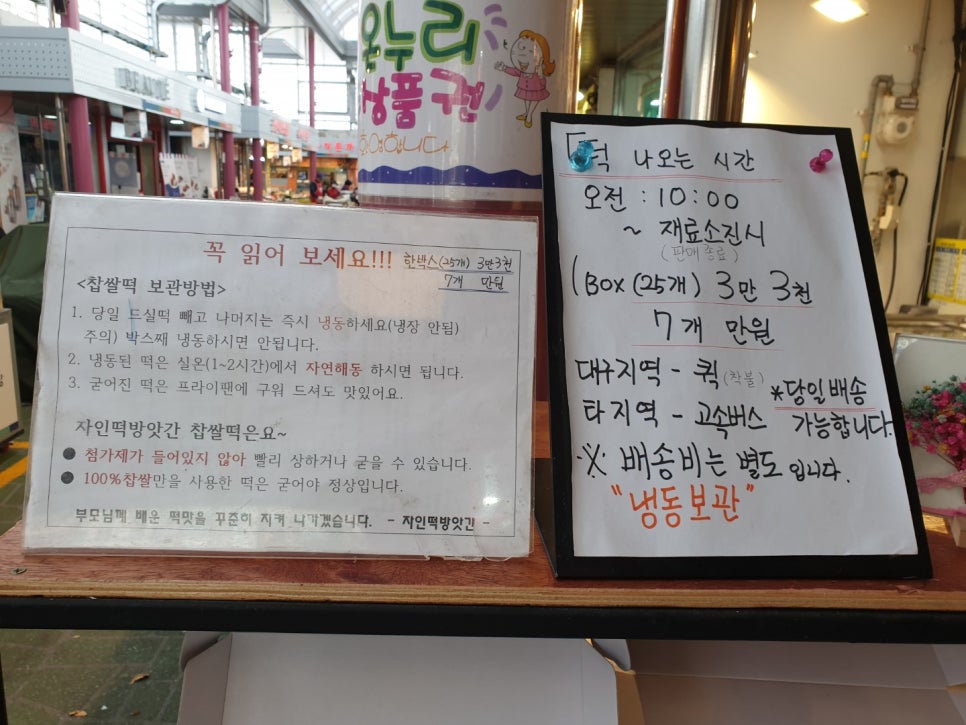 온누리
상품권
꼭 읽어 보세요!!! 한박스(25개) 3만 3천
7개 만원
<찹쌀떡 보관방법>
1. 당일 드실떡 빼고 나머지는 즉시 냉동하세요(냉장 안됩)
주의) 박스째 냉동하시면 안됩니다.
2. 냉동된 떡은 실온(1~2시간)에서 자연해동 하시면 됩니다.
3. 굳어진 떡은 프라이팬에 구워 드셔도 맛있어요.
자인떡방앗간 찹쌀떡은요~
● 첨가제가 들어있지 않아 빨리 상하거나 굳을 수 있습니다.
● 100%찹쌀만을 사용한 떡은 굳어야 정상입니다.
부모님께 배운 떡맛을 꾸준히 지켜 나가겠습니다. - 자인떡방앗간 -
떡 나오는 시간
오전 : 10:00
~ 재료소진시
(판매종료)
1Box (25개) 3만 3천
7개 만원
대구지역 - 퀵 (착불)
타지역 - 고속버스
*당일배송
가능합니다.
※ 배송비는 별도 입니다.
"냉동보관"